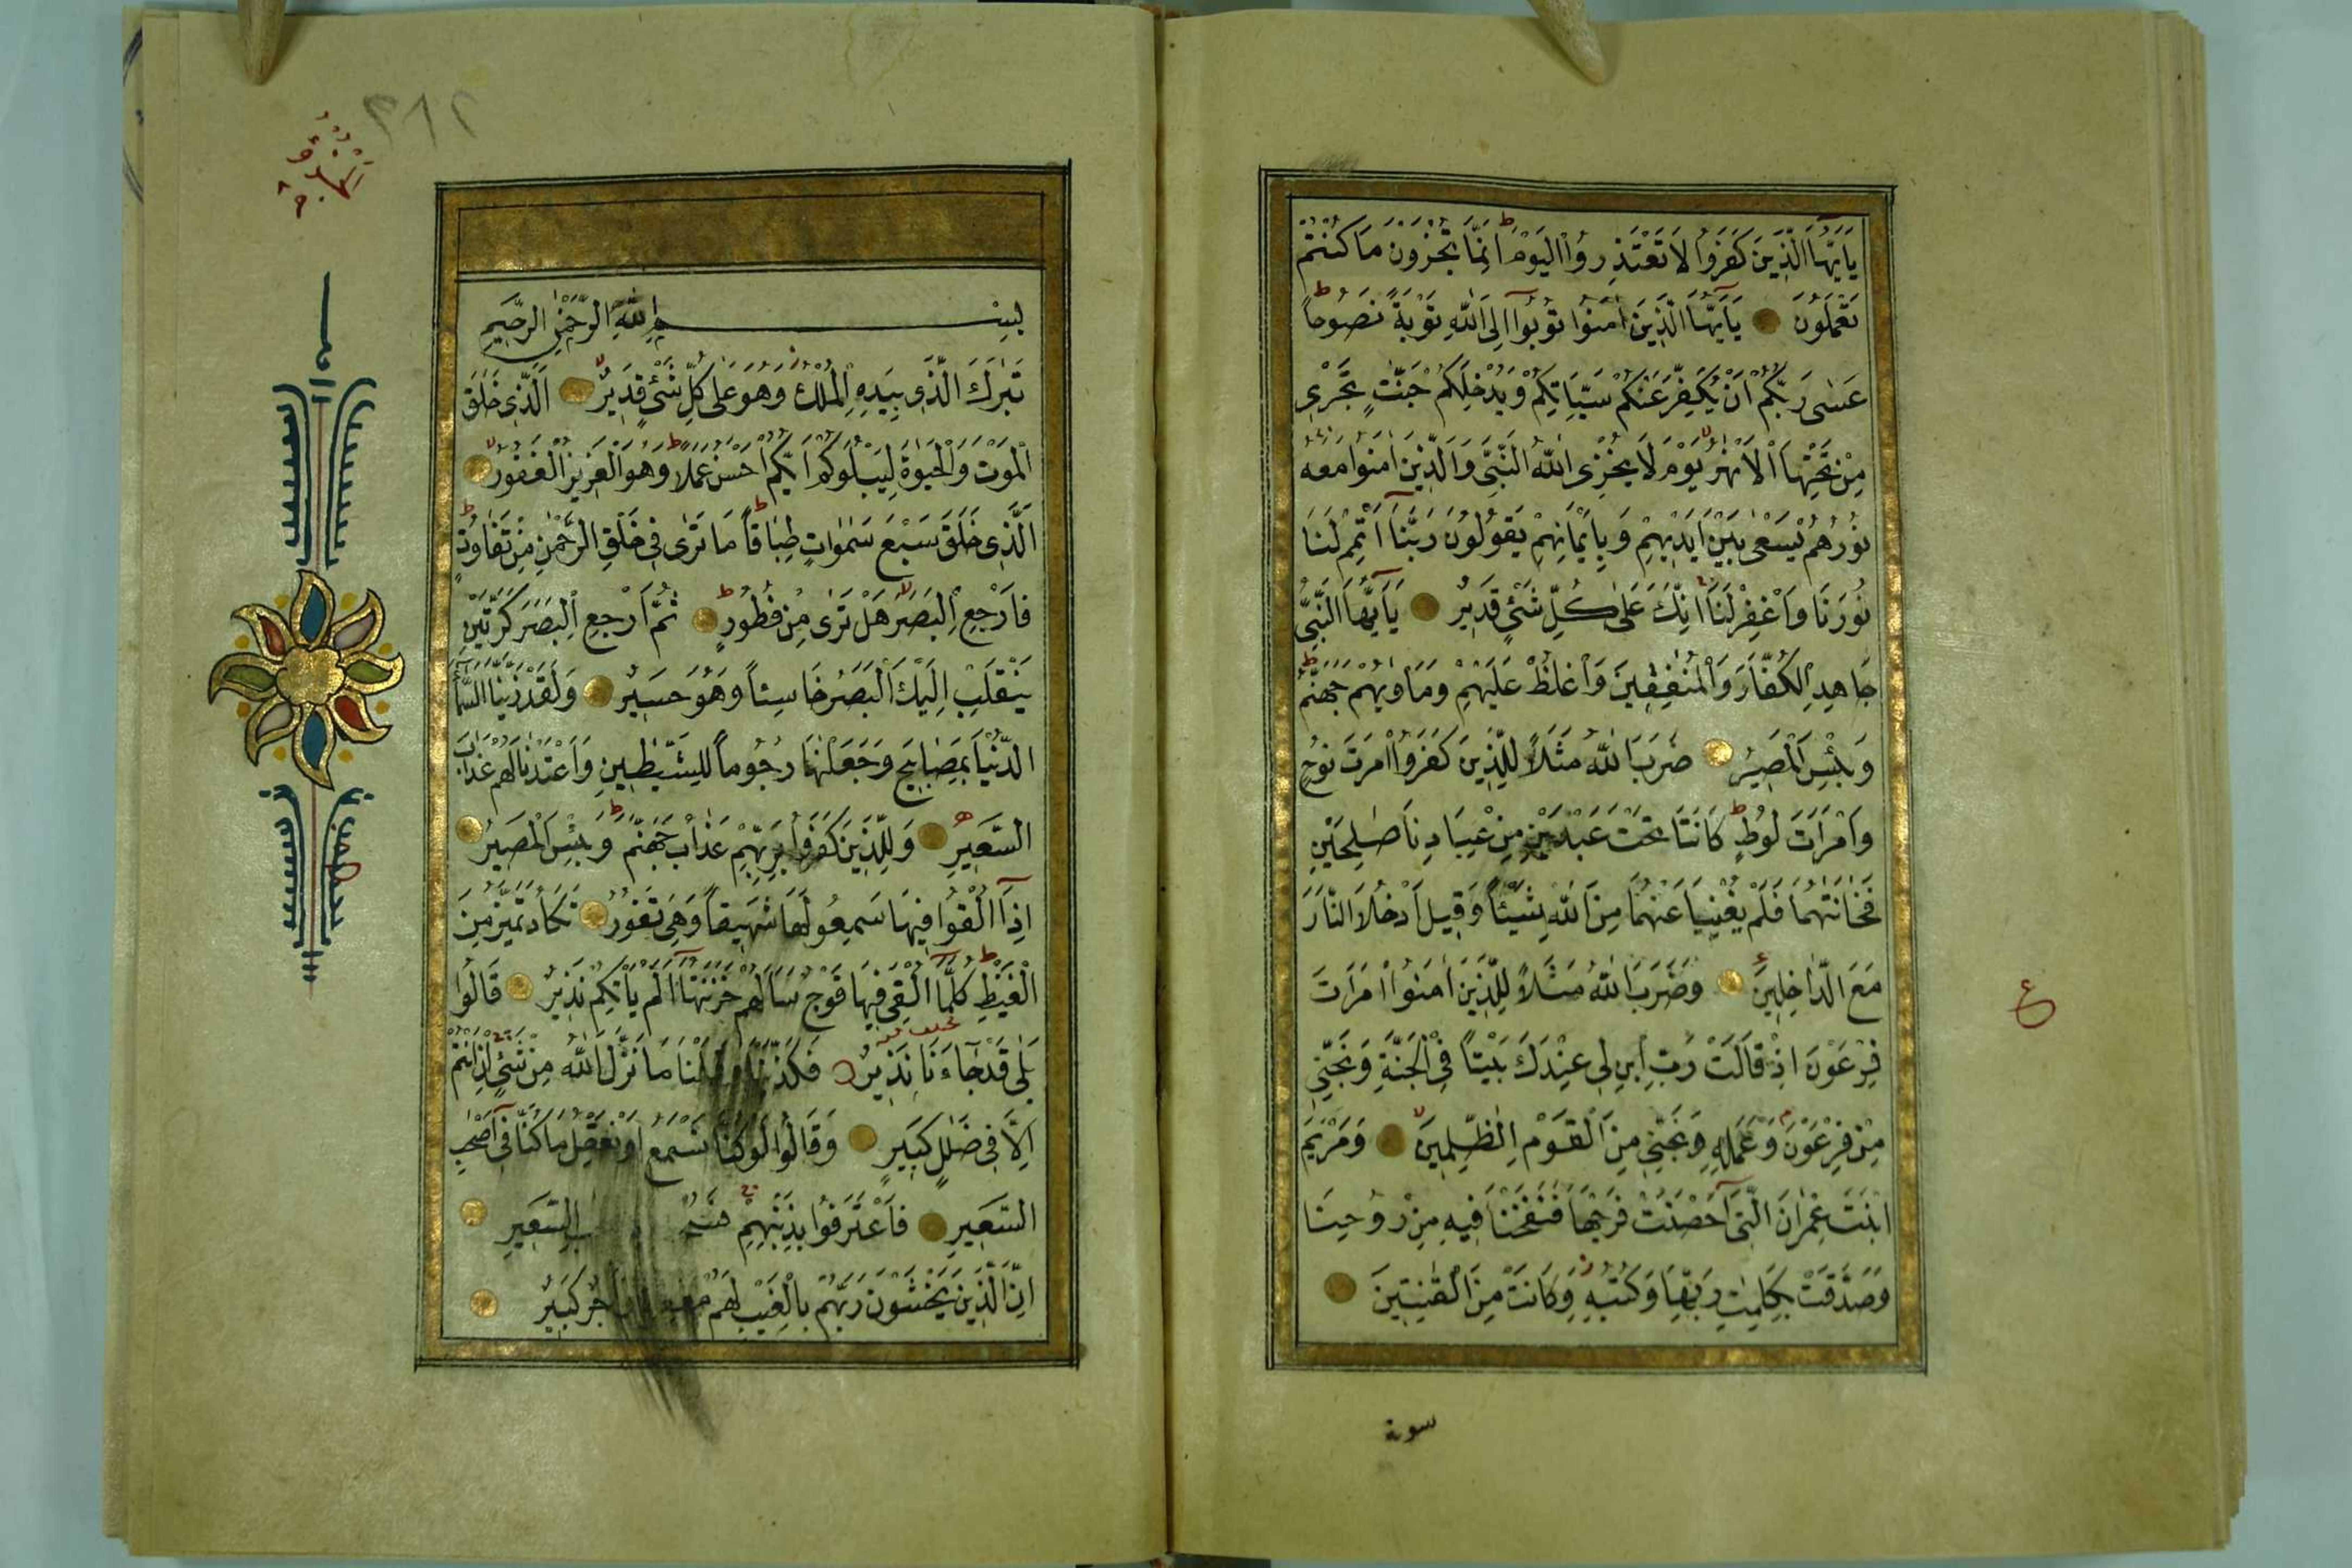 يَا اَيُّهَا الَّذِينَ كَفَرُوا لَا تَعْتَذِرُوا الْيَوْمَ ط اِنَّمَا تُجْزَوْنَ مَا كُنْتُمْ
تَعْمَلُونَ يَا اَيُّهَا الَّذِينَ اٰمَنُوا تُوبُوا اِلَى اللّٰهِ تَوْبَةً نَصُوحًا ط
عَسٰى رَبُّكُمْ اَنْ يُكَفِّرَ عَنْكُمْ سَيِّاٰتِكُمْ وَيُدْخِلَكُمْ جَنّٰتٍ تَجْرِى
مِنْ تَحْتِهَا الْاَنْهٰرُ يَوْمَ لَا يُخْزِى اللّٰهُ النَّبِىَّ وَالَّذِينَ اٰمَنُوا مَعَهُ
نُورُهُمْ يَسْعٰى بَيْنَ اَيْدِيهِمْ وَبِاَيْمَانِهِمْ يَقُولُونَ رَبَّنَا اَتْمِمْ لَنَا
نُورَنَا وَاغْفِرْ لَنَا اِنَّكَ عَلٰى كُلِّ شَىْءٍ قَدِيرٌ يَا اَيُّهَا النَّبِىُّ
جَاهِدِ الْكُفَّارَ وَالْمُنٰفِقِينَ وَاغْلُظْ عَلَيْهِمْ وَمَاْوٰيهُمْ جَهَنَّمُ ط
وَبِئْسَ الْمَصِيرُ ضَرَبَ اللّٰهُ مَثَلًا لِلَّذِينَ كَفَرُوا امْرَاَتَ نُوحٍ
وَامْرَاَتَ لُوطٍ ط كَانَتَا تَحْتَ عَبْدَيْنِ مِنْ عِبَادِنَا صٰلِحَيْنِ
فَخَانَتٰهُمَا فَلَمْ يُغْنِيَا عَنْهُمَا مِنَ اللّٰهِ شَيْئًا وَقِيلَ ادْخُلَا النَّارَ
مَعَ الدَّاخِلِينَ وَضَرَبَ اللّٰهُ مَثَلًا لِلَّذِينَ اٰمَنُوا امْرَاَتَ
فِرْعَوْنَ اِذْ قَالَتْ رَبِّ ابْنِ لِى عِنْدَكَ بَيْتًا فِى الْجَنَّةِ وَنَجِّنِى
مِنْ فِرْعَوْنَ وَعَمَلِهِ وَنَجِّنِى مِنَ الْقَوْمِ الظّٰلِمِينَ وَمَرْيَمَ
ابْنَتَ عِمْرٰنَ الَّتِى اَحْصَنَتْ فَرْجَهَا فَنَفَخْنَا فِيهِ مِنْ رُوحِنَا
وَصَدَّقَتْ بِكَلِمٰتِ رَبِّهَا وَكُتُبِهِ وَكَانَتْ مِنَ الْقٰنِتِينَ
ع
سورة
٣١٢
بِسْمِ اللّٰهِ الرَّحْمٰنِ الرَّحِيمِ
تَبٰرَكَ الَّذِى بِيَدِهِ الْمُلْكُ وَهُوَ عَلٰى كُلِّ شَىْءٍ قَدِيرٌ اَلَّذِى خَلَقَ
الْمَوْتَ وَالْحَيٰوةَ لِيَبْلُوَكُمْ اَيُّكُمْ اَحْسَنُ عَمَلًا ط وَهُوَ الْعَزِيزُ الْغَفُورُ
الَّذِى خَلَقَ سَبْعَ سَمٰوَاتٍ طِبَاقًا ط مَا تَرٰى فِى خَلْقِ الرَّحْمٰنِ مِنْ تَفَاوُتٍ ط
فَارْجِعِ الْبَصَرَ هَلْ تَرٰى مِنْ فُطُورٍ ط ثُمَّ ارْجِعِ الْبَصَرَ كَرَّتَيْنِ
يَنْقَلِبْ اِلَيْكَ الْبَصَرُ خَاسِئًا وَهُوَ حَسِيرٌ وَلَقَدْ زَيَّنَّا السَّمَاءَ
الدُّنْيَا بِمَصَابِيحَ وَجَعَلْنٰهَا رُجُومًا لِلشَّيٰطِينِ وَاَعْتَدْنَا لَهُمْ عَذَابَ
السَّعِيرِ وَلِلَّذِينَ كَفَرُوا بِرَبِّهِمْ عَذَابُ جَهَنَّمَ ط وَبِئْسَ الْمَصِيرُ
اِذَا اُلْقُوا فِيهَا سَمِعُوا لَهَا شَهِيقًا وَهِىَ تَفُورُ تَكَادُ تَمَيَّزُ مِنَ
الْغَيْظِ ط كُلَّمَا اُلْقِىَ فِيهَا فَوْجٌ سَاَلَهُمْ خَزَنَتُهَا اَلَمْ يَاْتِكُمْ نَذِيرٌ قَالُوا
بَلٰى قَدْ جَاءَنَا نَذِيرٌ فَكَذَّبْنَا وَقُلْنَا مَا نَزَّلَ اللّٰهُ مِنْ شَىْءٍ اِنْ اَنْتُمْ
اِلَّا فِى ضَلٰلٍ كَبِيرٍ وَقَالُوا لَوْ كُنَّا نَسْمَعُ اَوْ نَعْقِلُ مَا كُنَّا فِى اَصْحٰبِ
السَّعِيرِ فَاعْتَرَفُوا بِذَنْبِهِمْ السَّعِيرِ
اِنَّ الَّذِينَ يَخْشَوْنَ رَبَّهُمْ بِالْغَيْبِ لَهُمْ مَغْفِرَةٌ وَاَجْرٌ كَبِيرٌ